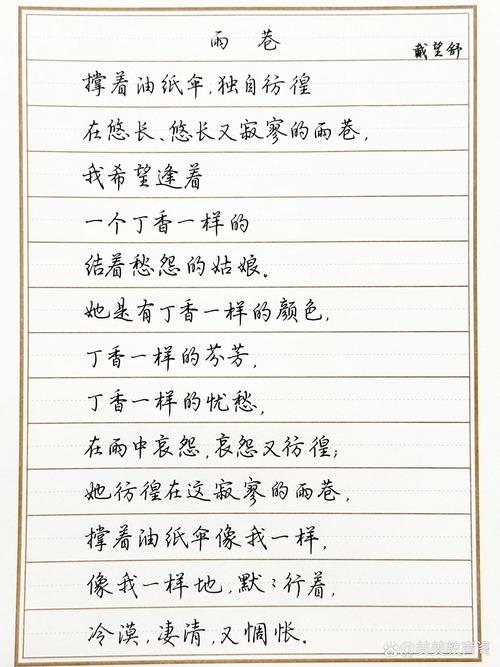 雨巷
戴望舒
撑着油纸伞,独自彷徨
在悠长、悠长又寂寥的雨巷,
我希望逢着
一个丁香一样的
结着愁怨的姑娘。
她是有丁香一样的颜色,
丁香一样的芬芳,
丁香一样的忧愁,
在雨中哀怨,哀怨又彷徨;
她彷徨在这寂寥的雨巷,
撑着油纸伞像我一样,
像我一样地,默〻行着,
冷漠,凄清,又惆怅。